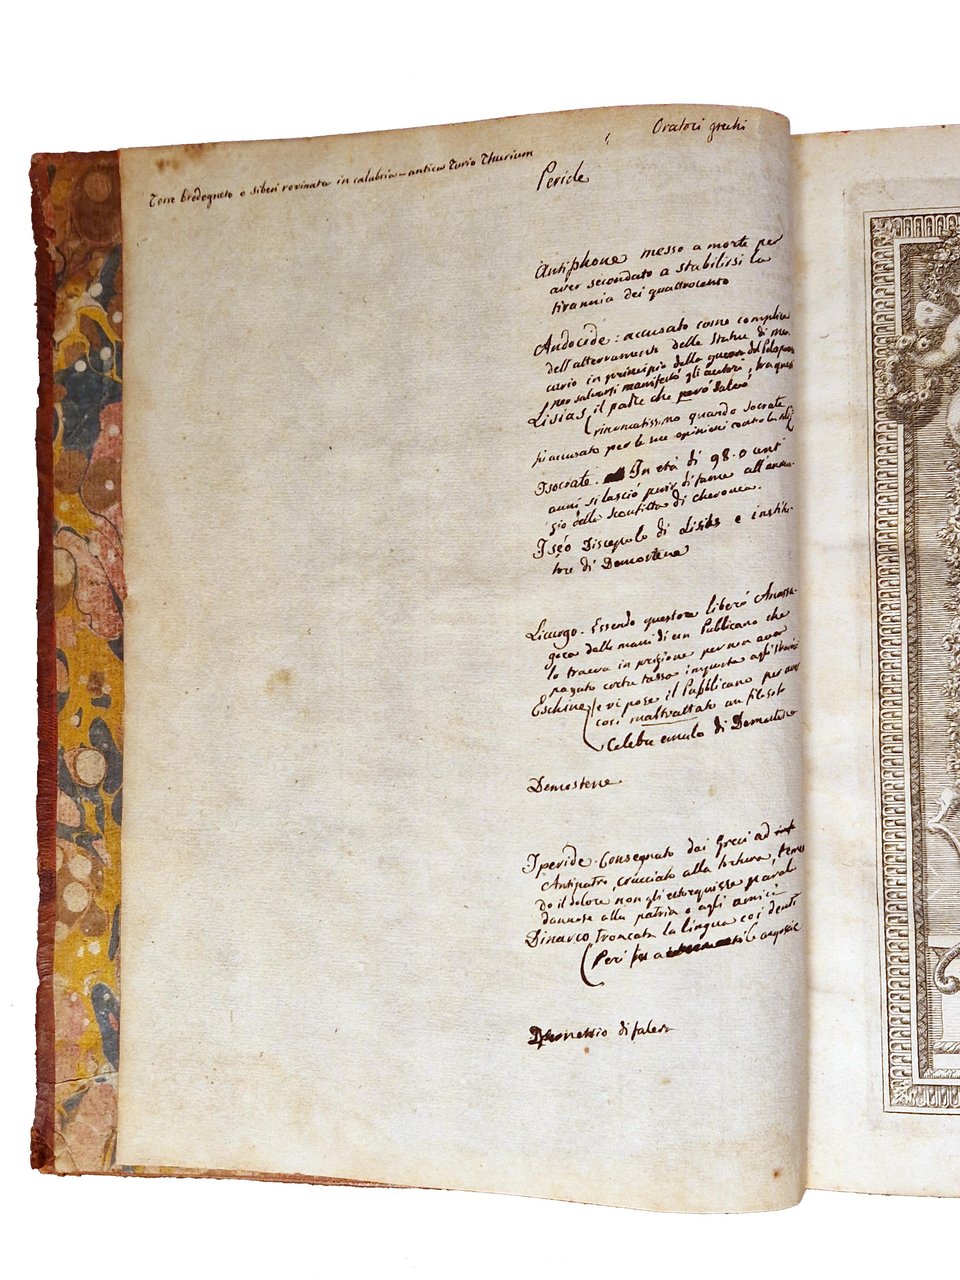 Oratori grechi
Torre brodogneto o Siberi rovinata in calabria - antica Turio Thurium
Pericle
Antiphone messo a morte per
aver secondato a stabilirsi la
tirannia dei quattrocento
Andocide: accusato come complice
dell'alteramento delle Statue di mer
curio in principio della guerra del Pelopon
per salvarsi manifestó gli autori, tra quei
il padre che peró salvó
Lisias
rinomatissimo quando Socrate
fu accusato per le sue opinioni contro la
Isocrate. In etá di 98. o cent
anni si lasció morir di fame all'annun
zio della Sconfitta di cheronea.
Iséo Discepolo di Lisias e institu
tore di Demostene
Licurgo. Essendo questore liberó Anassa
gora dalle mani di un Publicano che
lo traeva in prigione per non aver
pagato certa tassa imposta agli Stran
e vi pose il Pubblicano per aver
cosi maltrattato un filosofo
Eschine
Celebre emulo di Demostene
Demostene
Iperide. Consegnato dai Greci ad
Antipatro, crucciato alla tortura, temen
do il dolore non gli estorquisse parola
dannosa alla patria o agli amici
troncata la lingua coi denti
Dinarco
Peri
Demetrio di faler